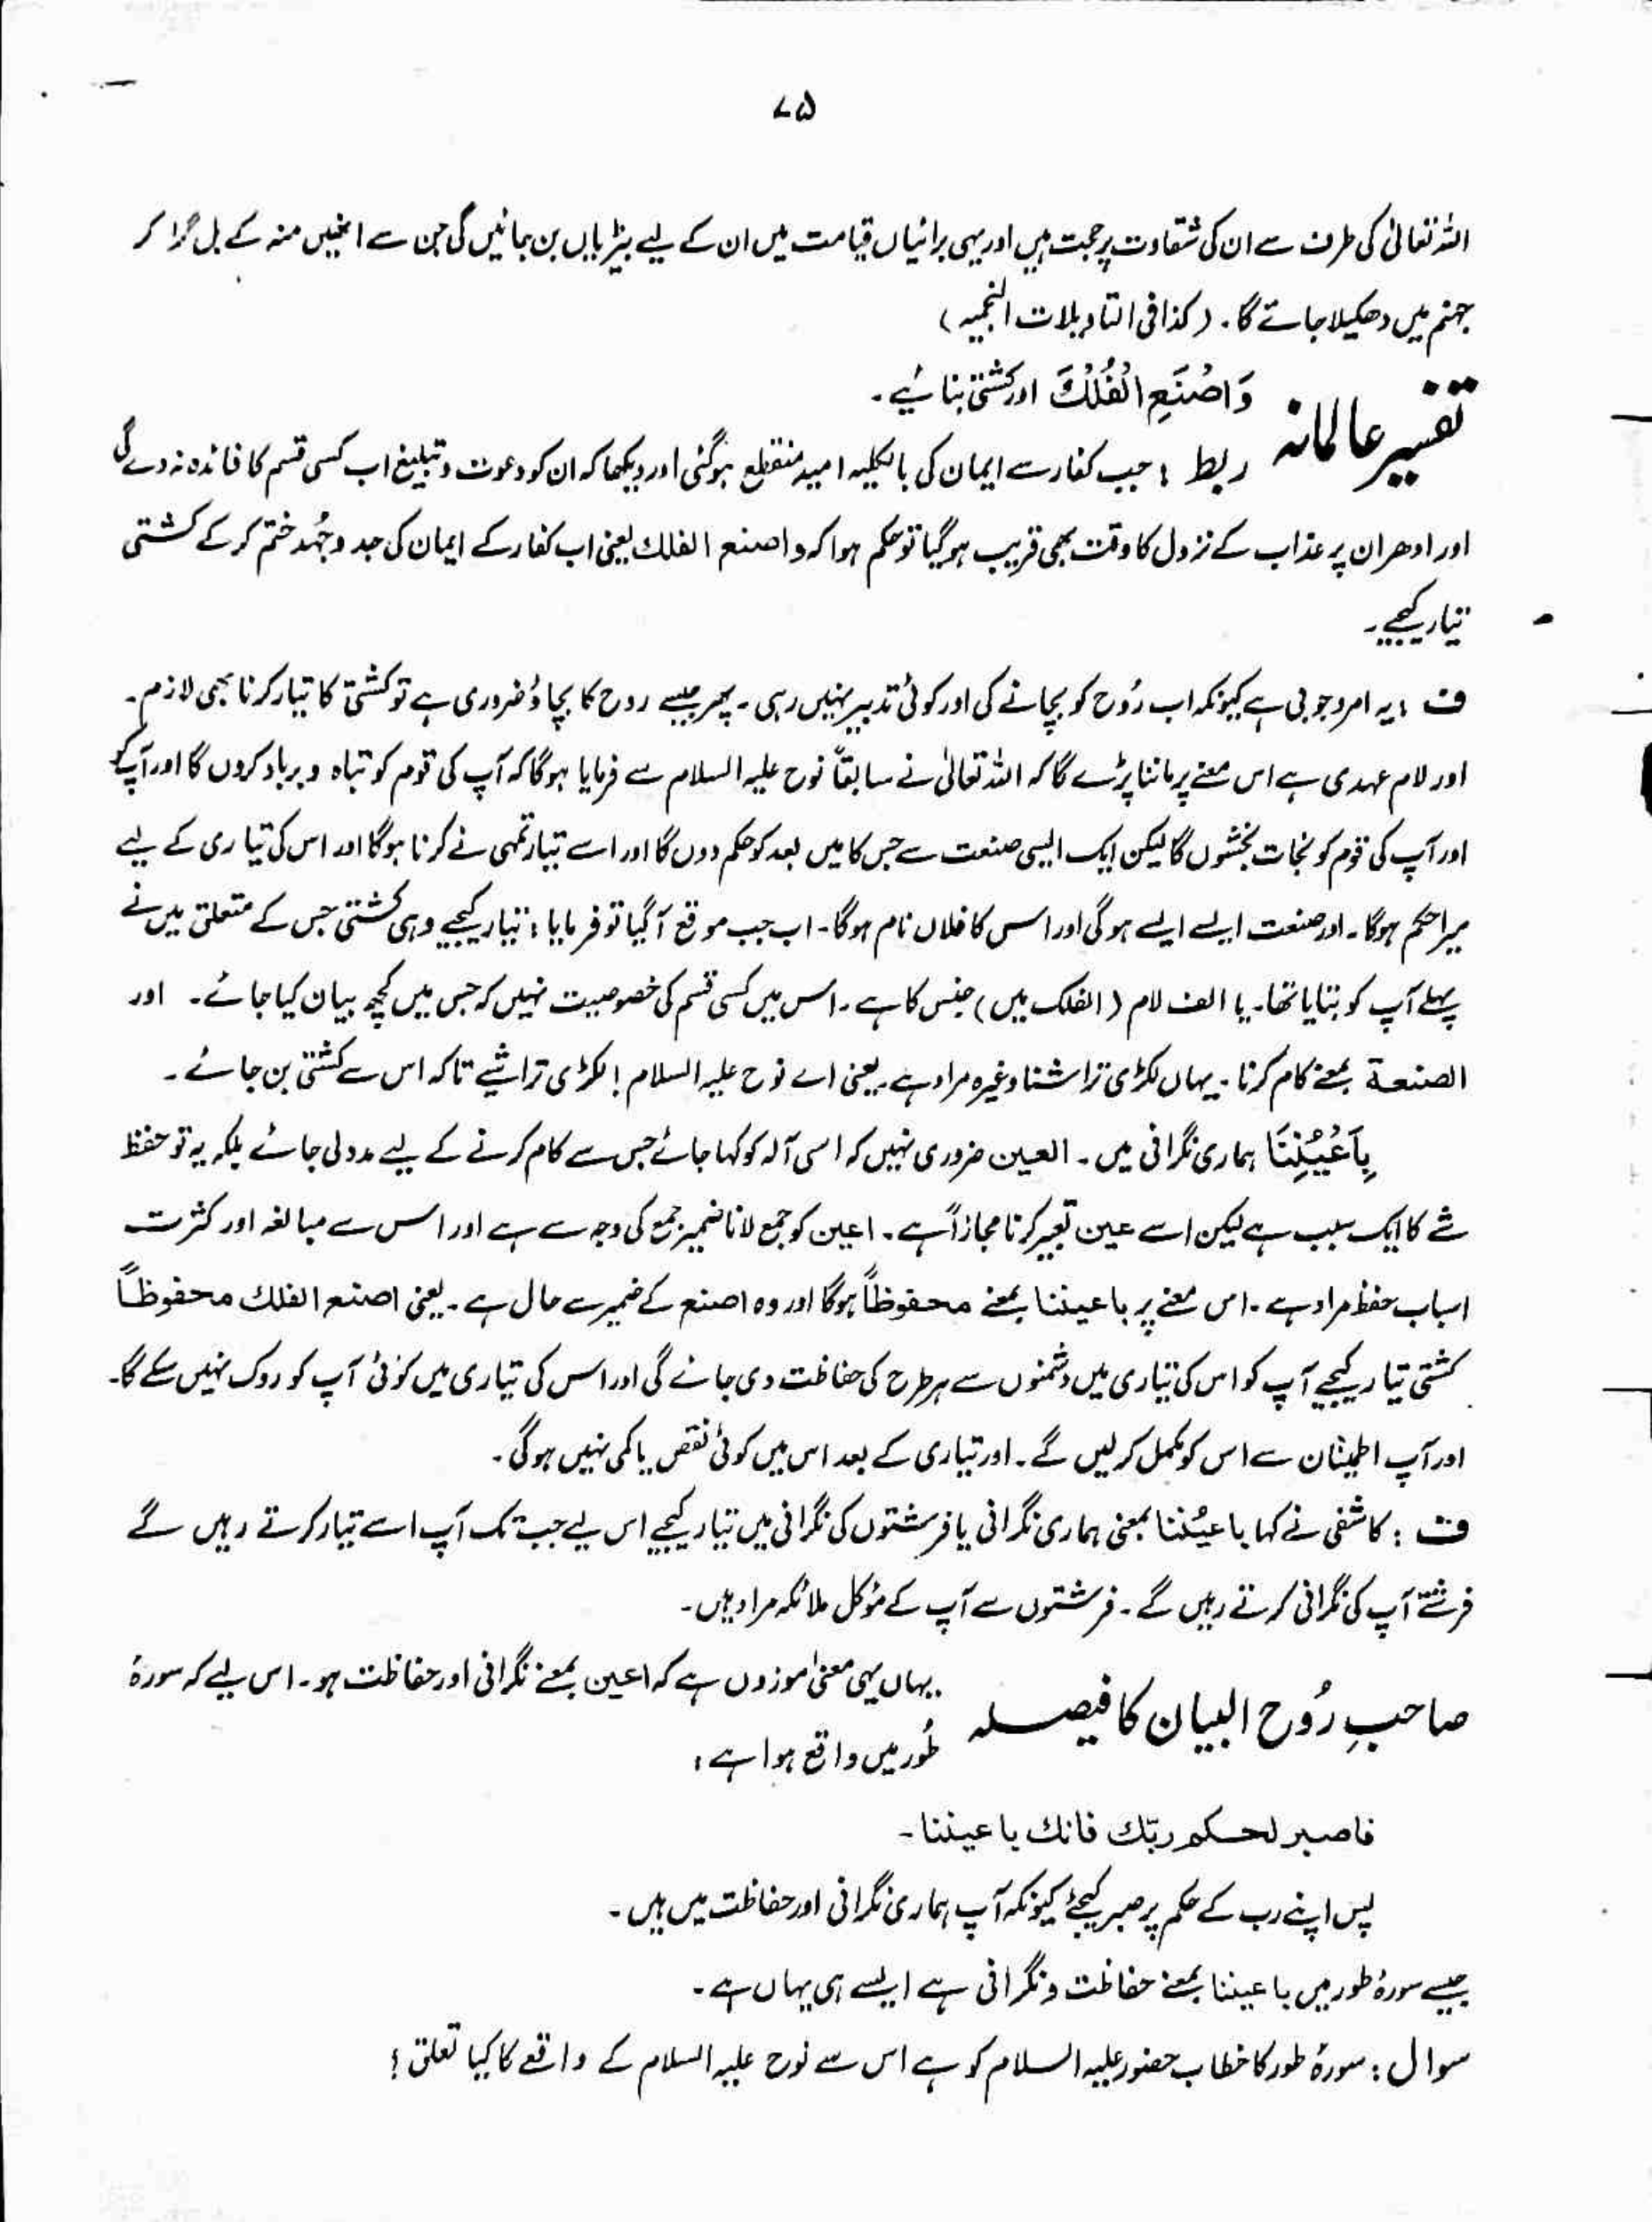 ۷۵
اللہ تعالیٰ کی طرف سے ان کی شقاوت پر حجت ہیں اور یہی برائیاں قیامت میں ان کے لیے بیڑیاں بن جائیں گی جن سے انھیں منہ کے بل گرا کر
جہنم میں دھکیلا جائے گا۔ (کذافی التاویلات النجمیہ)
تفسیر عالمانہ وَاصْنَعِ الْفُلْكَ اور کشتی بنائیے۔
ربط : جب کفار سے ایمان کی بالکلیہ امید منقطع ہو گئی اور دیکھا کہ ان کو دعوت و تبلیغ اب کسی قسم کا فائدہ نہ دے گی
اور ادھر ان پر عذاب کے نزول کا وقت بھی قریب ہو گیا تو حکم ہوا کہ واصنع الفلك یعنی اب کفار کے ایمان کی جد و جُہد ختم کر کے کشتی
تیار کیجیے۔
ف : یہ امر وجوبی ہے کیونکہ اب رُوح کو بچانے کی اور کوئی تدبیر نہیں رہی۔ پھر جیسے روح کا بچاؤ ضروری ہے تو کشتی کا تیار کرنا بھی لازم۔
اور لام عہدی ہے اس معنے پر ماننا پڑے گا کہ اللہ تعالیٰ نے سابقاً نوح علیہ السلام سے فرمایا ہوگا کہ آپ کی قوم کو تباہ و برباد کروں گا اور آپ کو
اور آپ کی قوم کو نجات بخشوں گا لیکن ایک ایسی صنعت سے جس کا میں بعد کو حکم دوں گا اور اسے تیار تمہی نے کرنا ہوگا اور اس کی تیاری کے لیے
میرا حکم ہوگا۔ اور صنعت ایسے ایسے ہو گی اور اس کا فلاں نام ہوگا۔ اب جب موقع آ گیا تو فرمایا : تیار کیجیے وہی کشتی جس کے متعلق میں نے
پہلے آپ کو بتایا تھا۔ یا الف لام (الفلک میں) جنس کا ہے۔ اس میں کسی قسم کی خصوصیت نہیں کہ جس میں کچھ بیان کیا جائے۔ اور
الصنعة بمعنے کام کرنا۔ یہاں لکڑی تراشنا وغیرہ مراد ہے۔ یعنی اے نوح علیہ السلام! لکڑی تراشیے تاکہ اس سے کشتی بن جائے۔
بِاَعْیُنِنَا ہماری نگرانی میں۔ العین ضروری نہیں کہ اسی آلہ کو کہا جائے جس سے کام کرنے کے لیے مدد لی جائے بلکہ یہ تو حفظ
شے کا ایک سبب ہے لیکن اسے عین تعبیر کرنا مجازاً ہے۔ اعین کو جمع لانا ضمیر جمع کی وجہ سے ہے اور اس سے مبالغہ اور کثرت
اسباب حفظ مراد ہے۔ اس معنے پر باعیننا بمعنے محفوظاً ہوگا اور وہ اصنع کے ضمیر سے حال ہے۔ یعنی اصنع الفلك محفوظاً
کشتی تیار کیجیے آپ کو اس کی تیاری میں دشمنوں سے ہر طرح کی حفاظت دی جائے گی اور اس کی تیاری میں کوئی آپ کو روک نہیں سکے گا۔
اور آپ اطمینان سے اس کو مکمل کر لیں گے۔ اور تیاری کے بعد اس میں کوئی نقص یا کمی نہیں ہوگی۔
ف : کاشفی نے کہا باعیُننا بمعنی ہماری نگرانی یا فرشتوں کی نگرانی میں تیار کیجیے اس لیے جب تک آپ اسے تیار کرتے رہیں گے
فرشتے آپ کی نگرانی کرتے رہیں گے۔ فرشتوں سے آپ کے مؤکل ملائکہ مراد ہیں۔
صاحبِ رُوح البیان کا فیصلہ یہاں یہی معنیٰ موزوں ہے کہ اعین بمعنے نگرانی اور حفاظت ہو۔ اس لیے کہ سورۂ
طُور میں واقع ہوا ہے :
فاصبر لحکم ربّك فانك باعیننا۔
پس اپنے رب کے حکم پر صبر کیجئے کیونکہ آپ ہماری نگرانی اور حفاظت میں ہیں۔
جیسے سورۂ طور میں باعیننا بمعنے حفاظت و نگرانی ہے ایسے ہی یہاں ہے۔
سوال : سورۂ طور کا خطاب حضور علیہ السلام کو ہے اس سے نوح علیہ السلام کے واقعے کا کیا تعلق؟